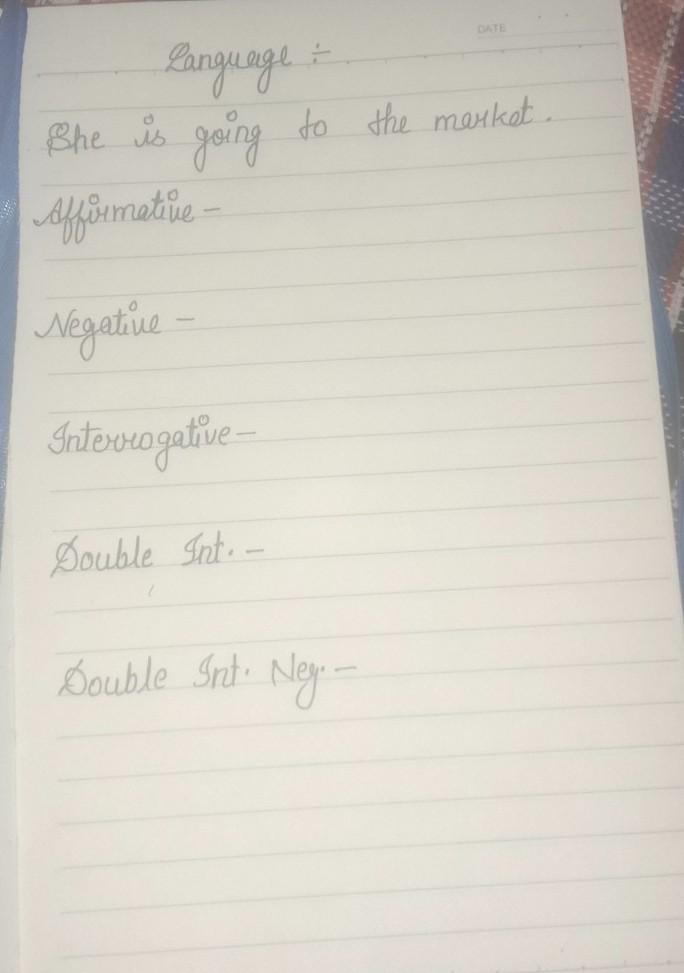 DATE
Language ÷
She is going to the market.
Affirmative -
Negative -
Interrogative -
Double Int. -
Double Int. Neg. -